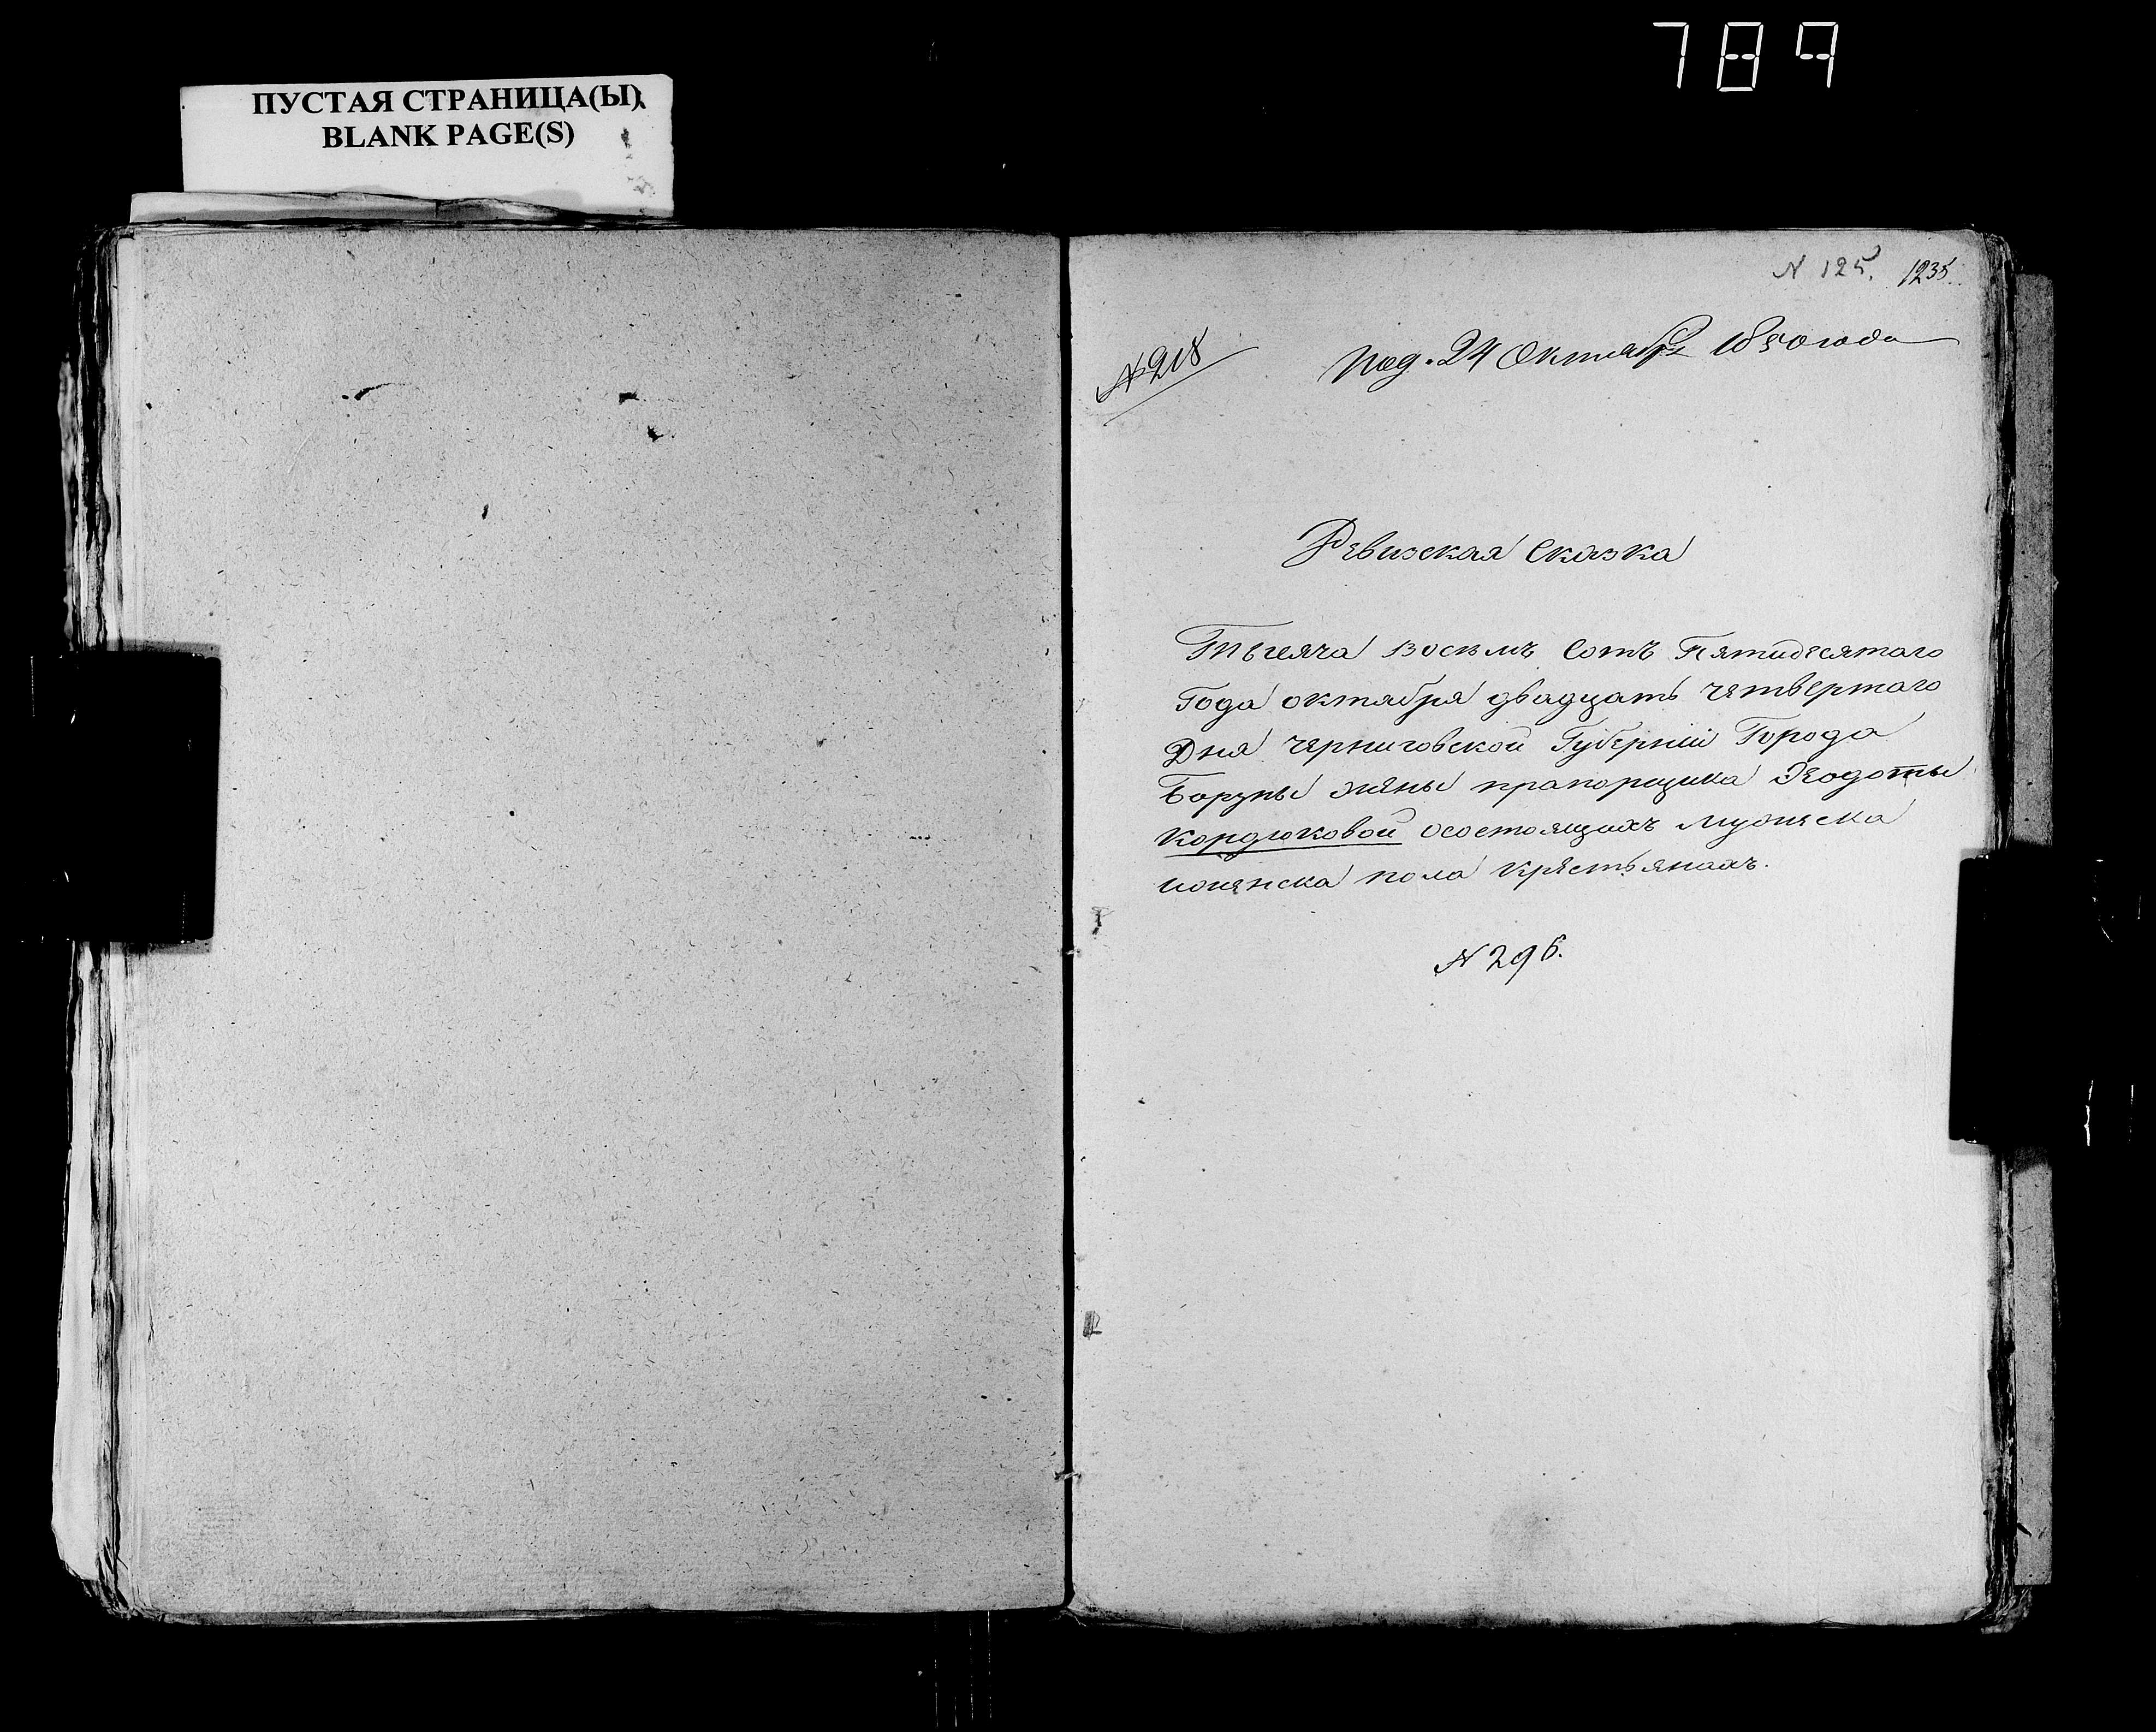 789
ПУСТАЯ СТРАНИЦА(Ы)
BLANK PAGE(S)
N 125. 1235.
N 218
Под. 24 Октября 1850 года
Ревизская Сказка
Тысяча восемь Сотъ Пятидесятаго
Года октября двадцать четвертаго
Дня черниговской Губерніи Города
Борзны жены прапорщика Феодоты
Кордюковой осостоящихъ мужеска
иженска пола крестьянахъ.
N 296.